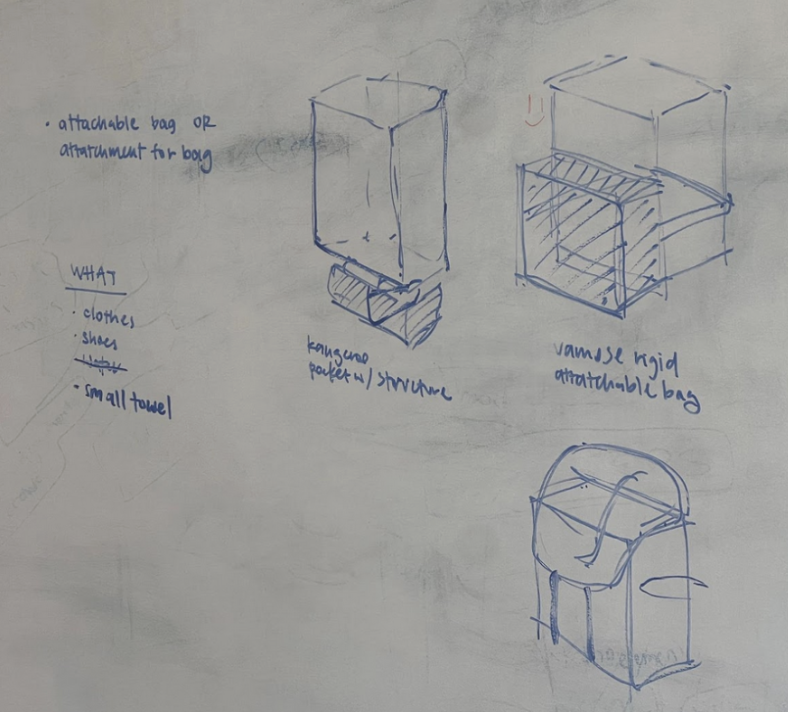 · attachable bag OR
attatchment for bag
WHAT
· clothes
· shoes
· small towel
kangaroo
pocket w/ structure
rigid
attatchable bag